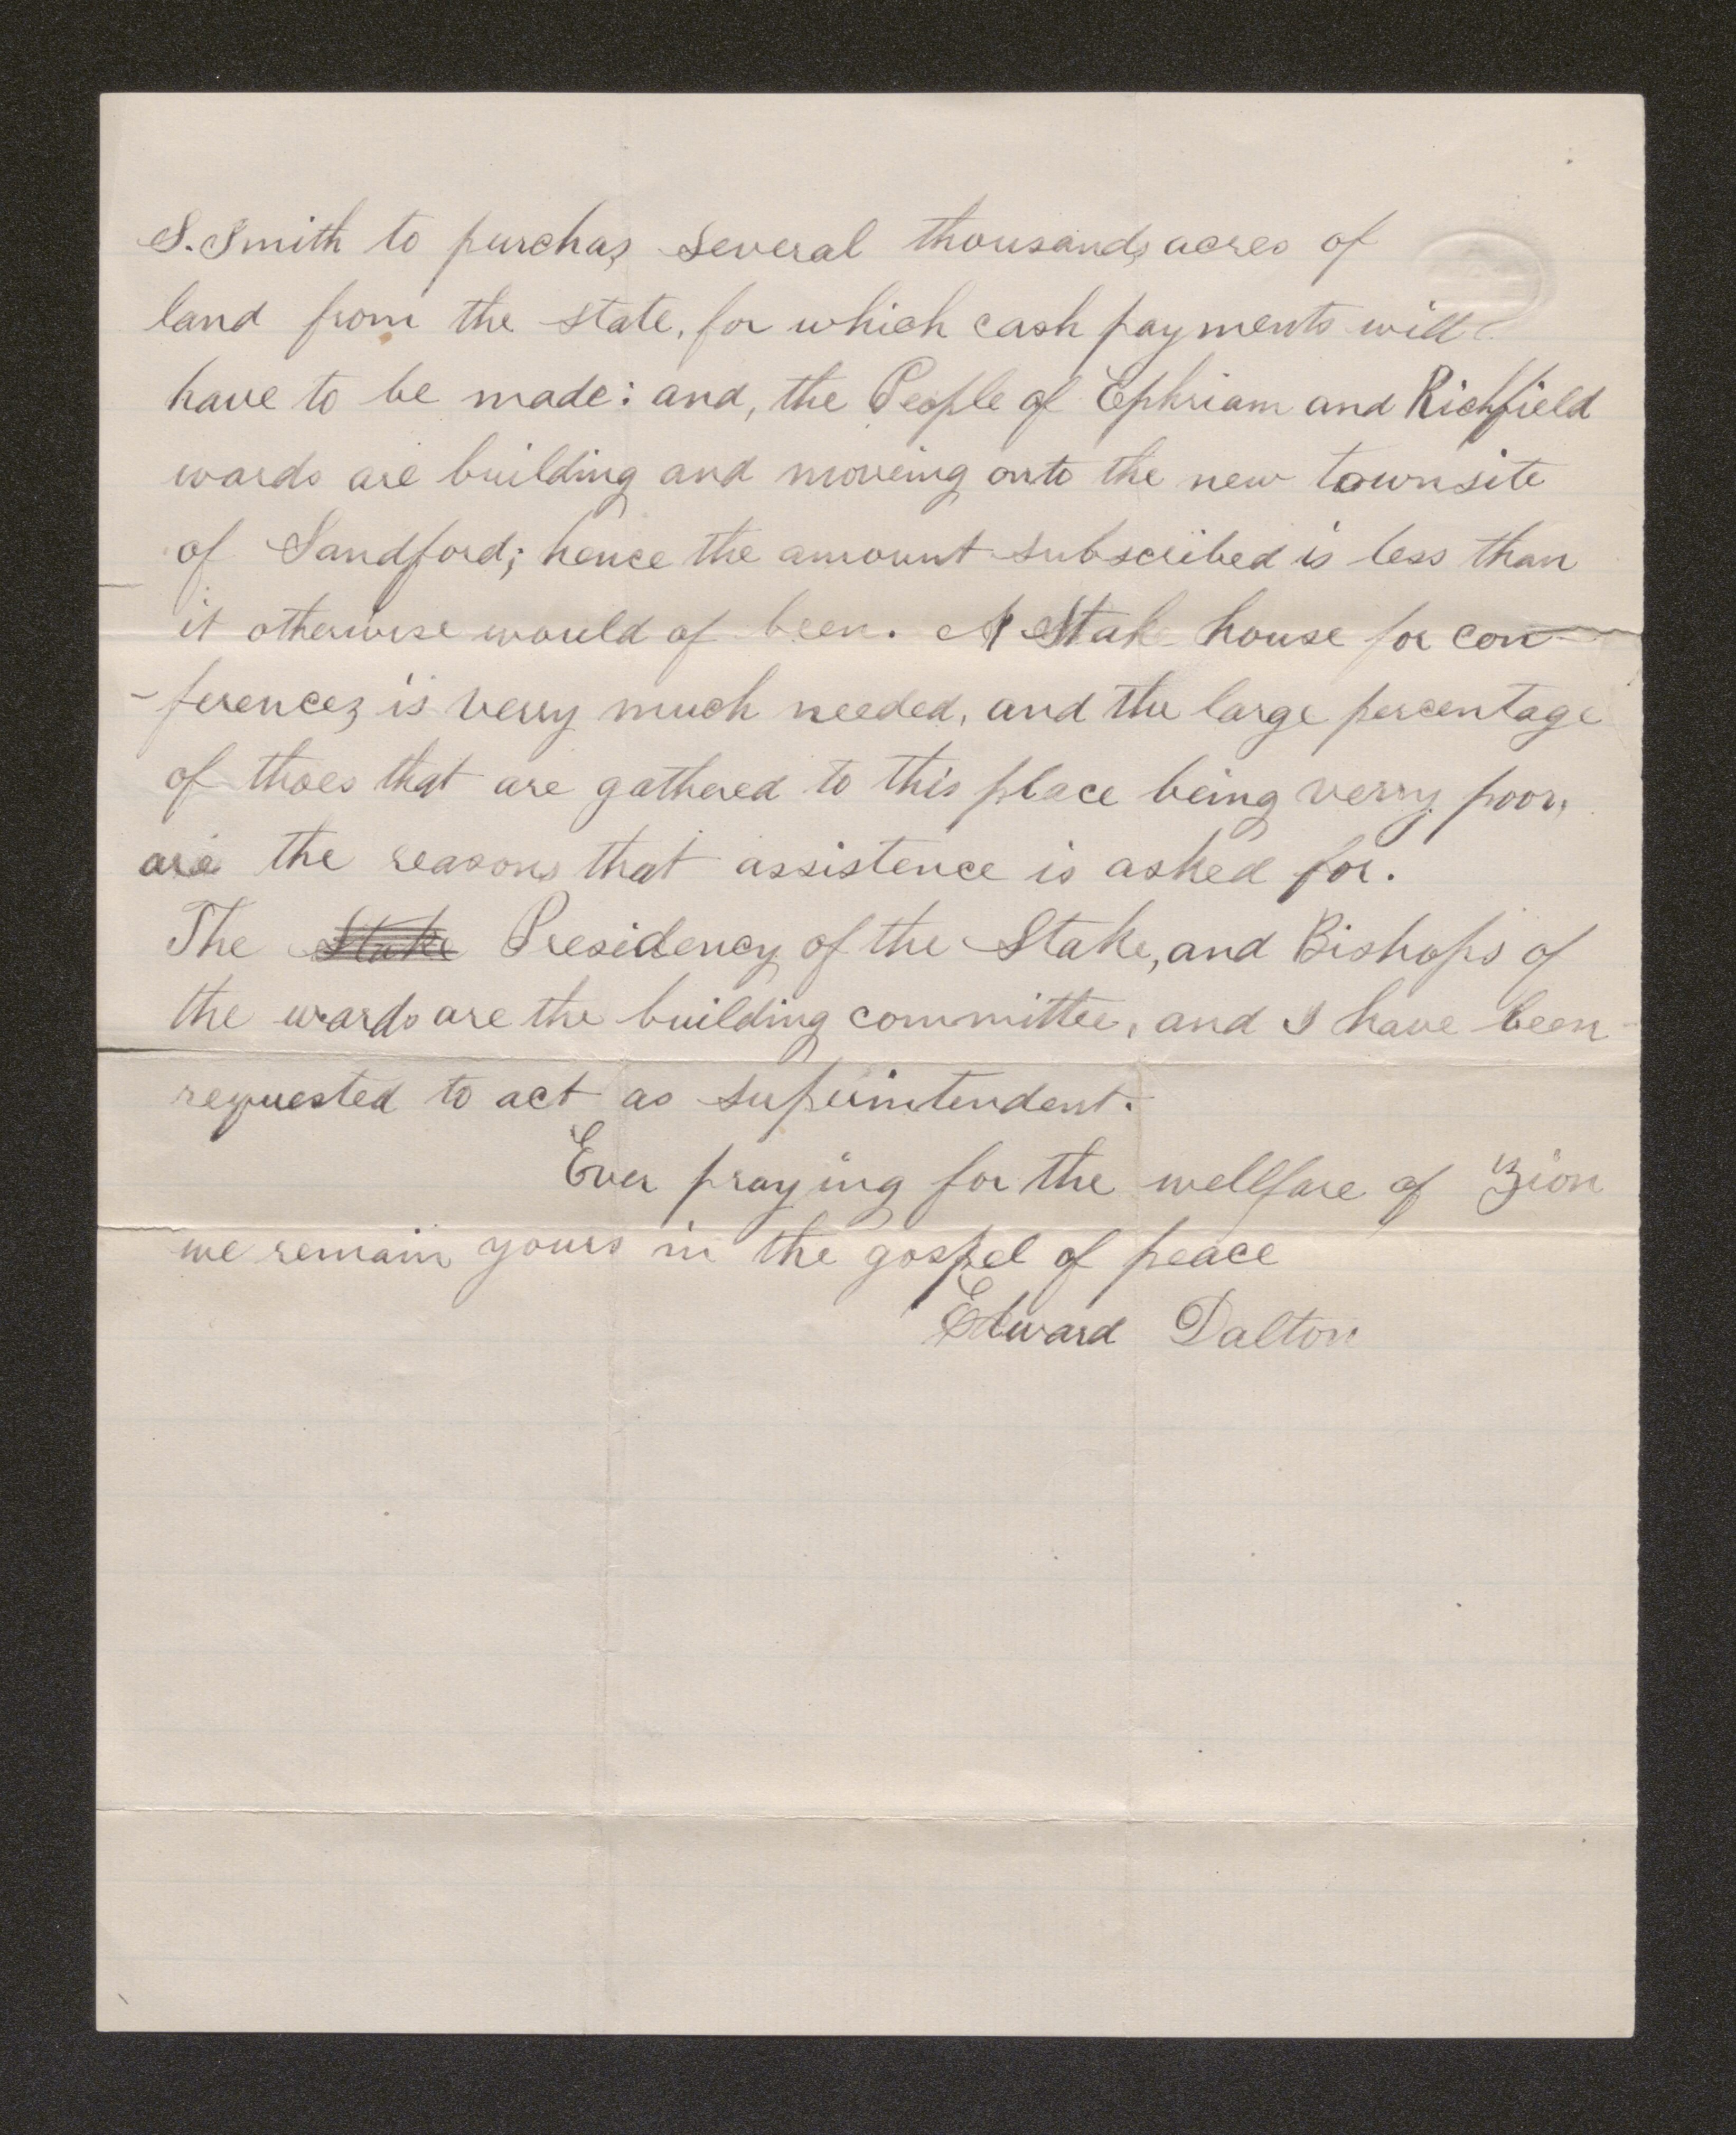 S. Smith to purchas several thousands acres of
land from the state, for which cash payments will
have to be made: and, the People of Ephriam and Richfield
wards are building and moveing onto the new townsite
of Sandford; hence the amount subscribed is less than
it otherwise would of been. A Stake house for con-
-ferences is verry much needed, and the large percentage
of thoes that are gathered to this place being verry poor,
are the reasons that assistence is asked for.
The Stake Presidency of the Stake, and Bishops of
the wards are the building committee, and I have been
requested to act as superintendent.
Ever praying for the wellfare of Zion
we remain yours in the gospel of peace
Edward Dalton